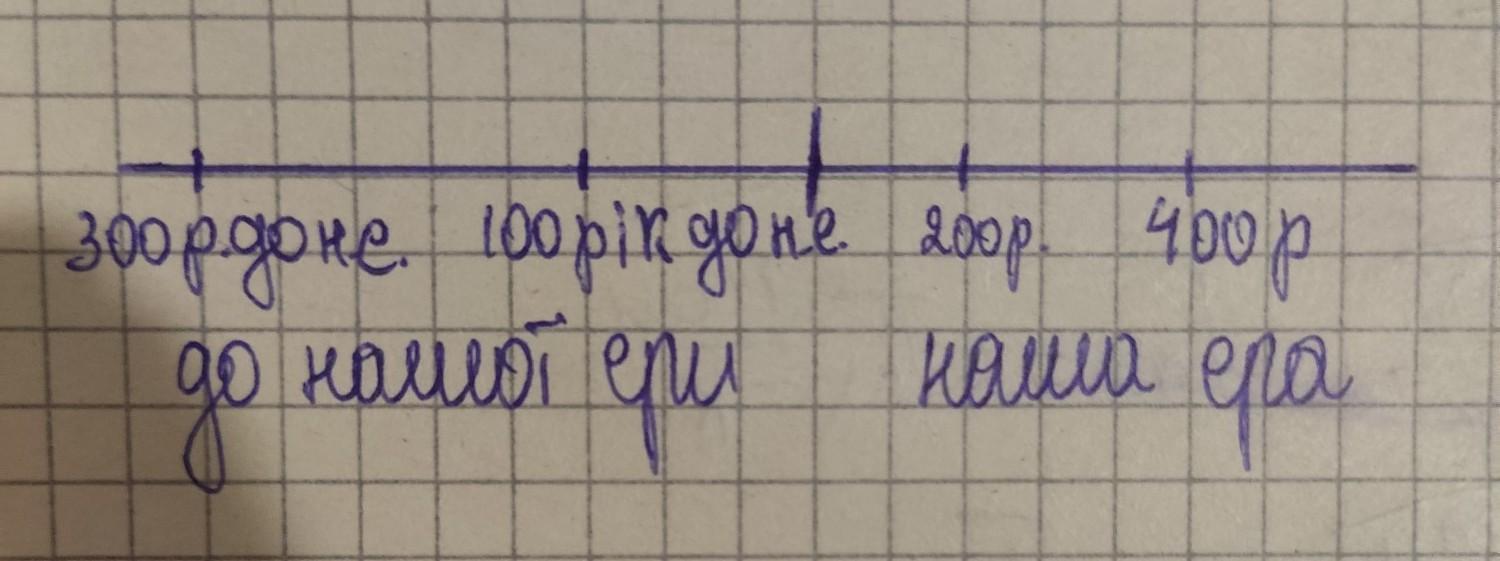 300р.до н.е. 100рік до н.е. 200р. 400р
до нашої ери наша ера